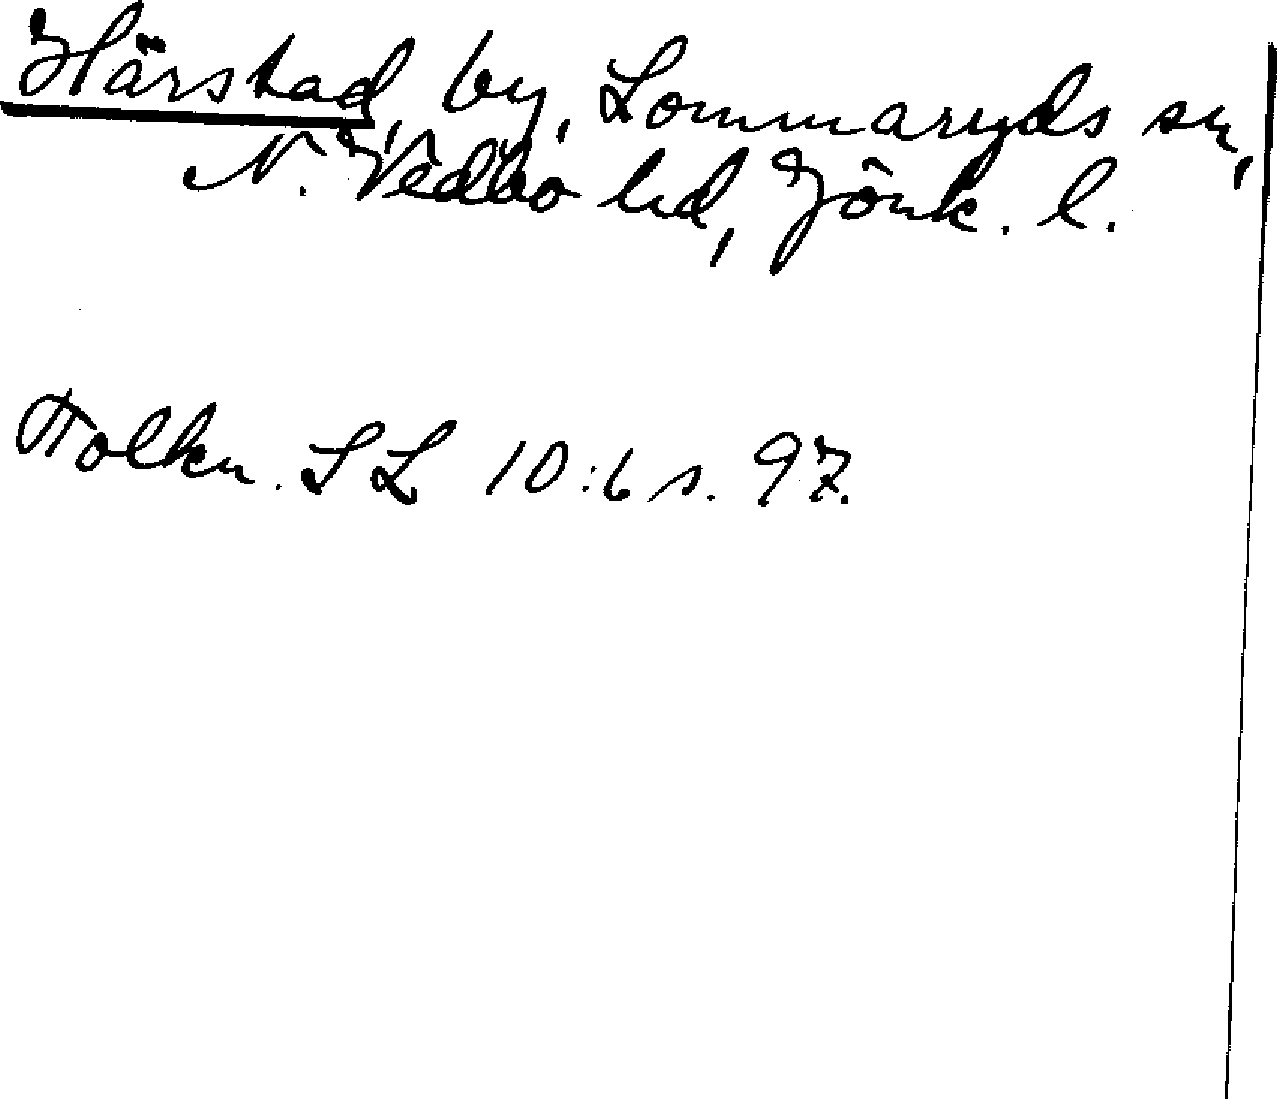 Härstad, by, Lommaryds sn,
N. Vedbo hd, Jönk. l.
Folkn. SL 10:6 s. 97.